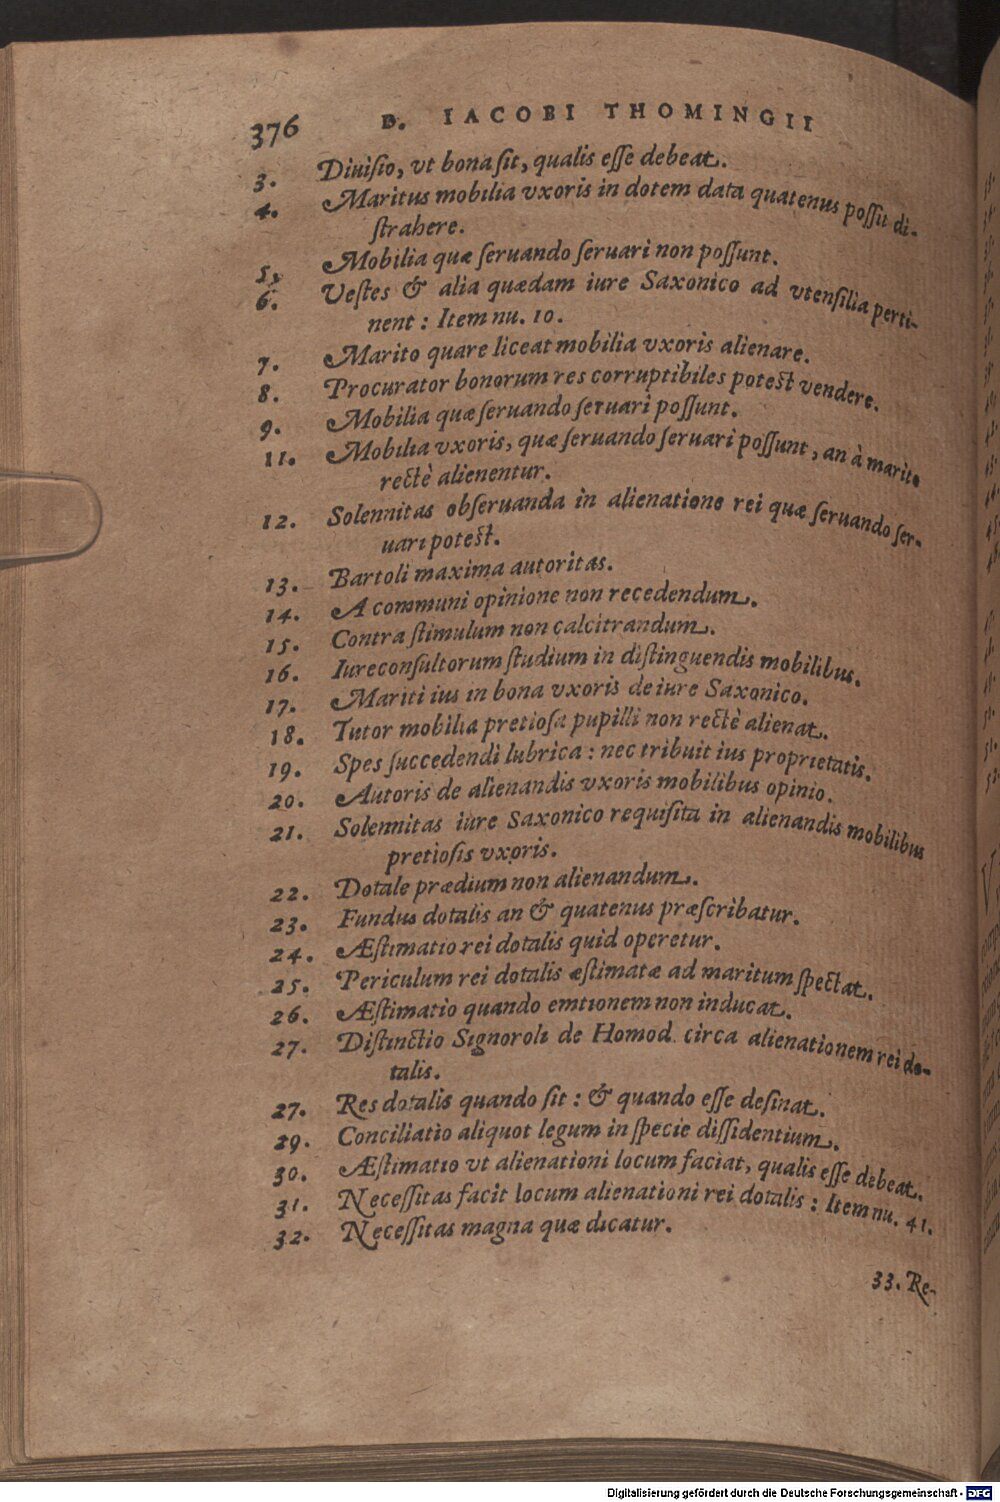 376 D. IACOBI THOMINGII
3. Diuisio, vt bona sit, qualis esse debeat.
4. Maritus mobilia vxoris in dotem data quatenus possit di-
strahere.
5. Mobilia quæ seruando seruari non possunt.
6. Vestes & alia quædam iure Saxonico ad vtensilia perti-
nent : Item nu. 10.
7. Marito quare liceat mobilia vxoris alienare.
8. Procurator bonorum res corruptibiles potest vendere.
9. Mobilia quæ seruando seruari possunt.
11. Mobilia vxoris, quæ seruando seruari possunt, an à marito
rectè alienentur.
12. Solennitas obseruanda in alienatione rei quæ seruando ser-
uari potest.
13. Bartoli maxima autoritas.
14. A communi opinione non recedendum.
15. Contra stimulum non calcitrandum.
16. Iureconsultorum studium in distinguendis mobilibus.
17. Mariti ius in bona vxoris de iure Saxonico.
18. Tutor mobilia pretiosa pupilli non rectè alienat.
19. Spes succedendi lubrica : nec tribuit ius proprietatis.
20. Autoris de alienandis vxoris mobilibus opinio.
21. Solennitas iure Saxonico requisita in alienandis mobilibus
pretiosis vxoris.
22. Dotale prædium non alienandum.
23. Fundus dotalis an & quatenus præscribatur.
24. Æstimatio rei dotalis quid operetur.
25. Periculum rei dotalis æstimatæ ad maritum spectat.
26. Æstimatio quando emtionem non inducat.
27. Distinctio Signoroli de Homod. circa alienationem rei do-
talis.
27. Res dotalis quando sit : & quando esse desinat.
29. Conciliatio aliquot legum in specie dissidentium.
30. Æstimatio vt alienationi locum faciat, qualis esse debeat.
31. Necessitas facit locum alienationi rei dotalis : Item nu. 41.
32. Necessitas magna quæ dicatur.
33. Re-
Digitalisierung gefördert durch die Deutsche Forschungsgemeinschaft - DFG